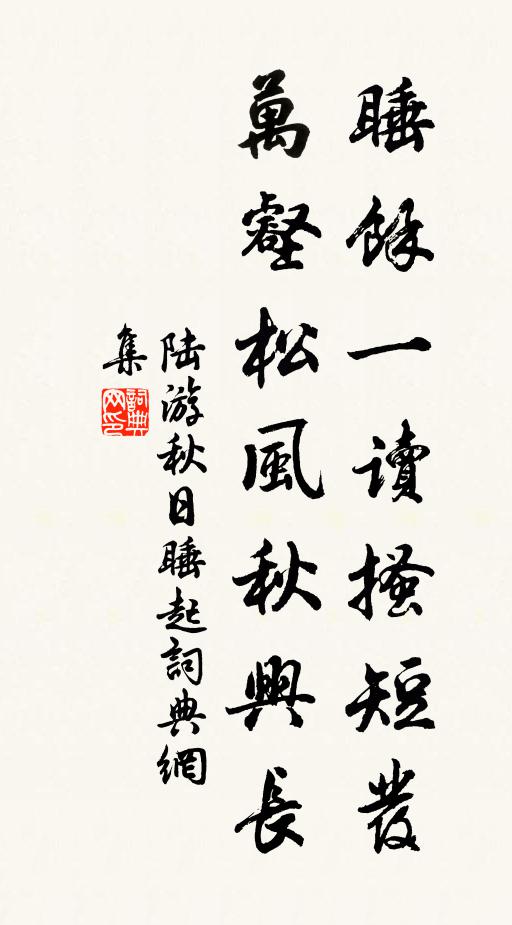 睡餘一讀搔短發
萬壑松風秋興長
陆游秋日睡起詞典網
集
詞典网印